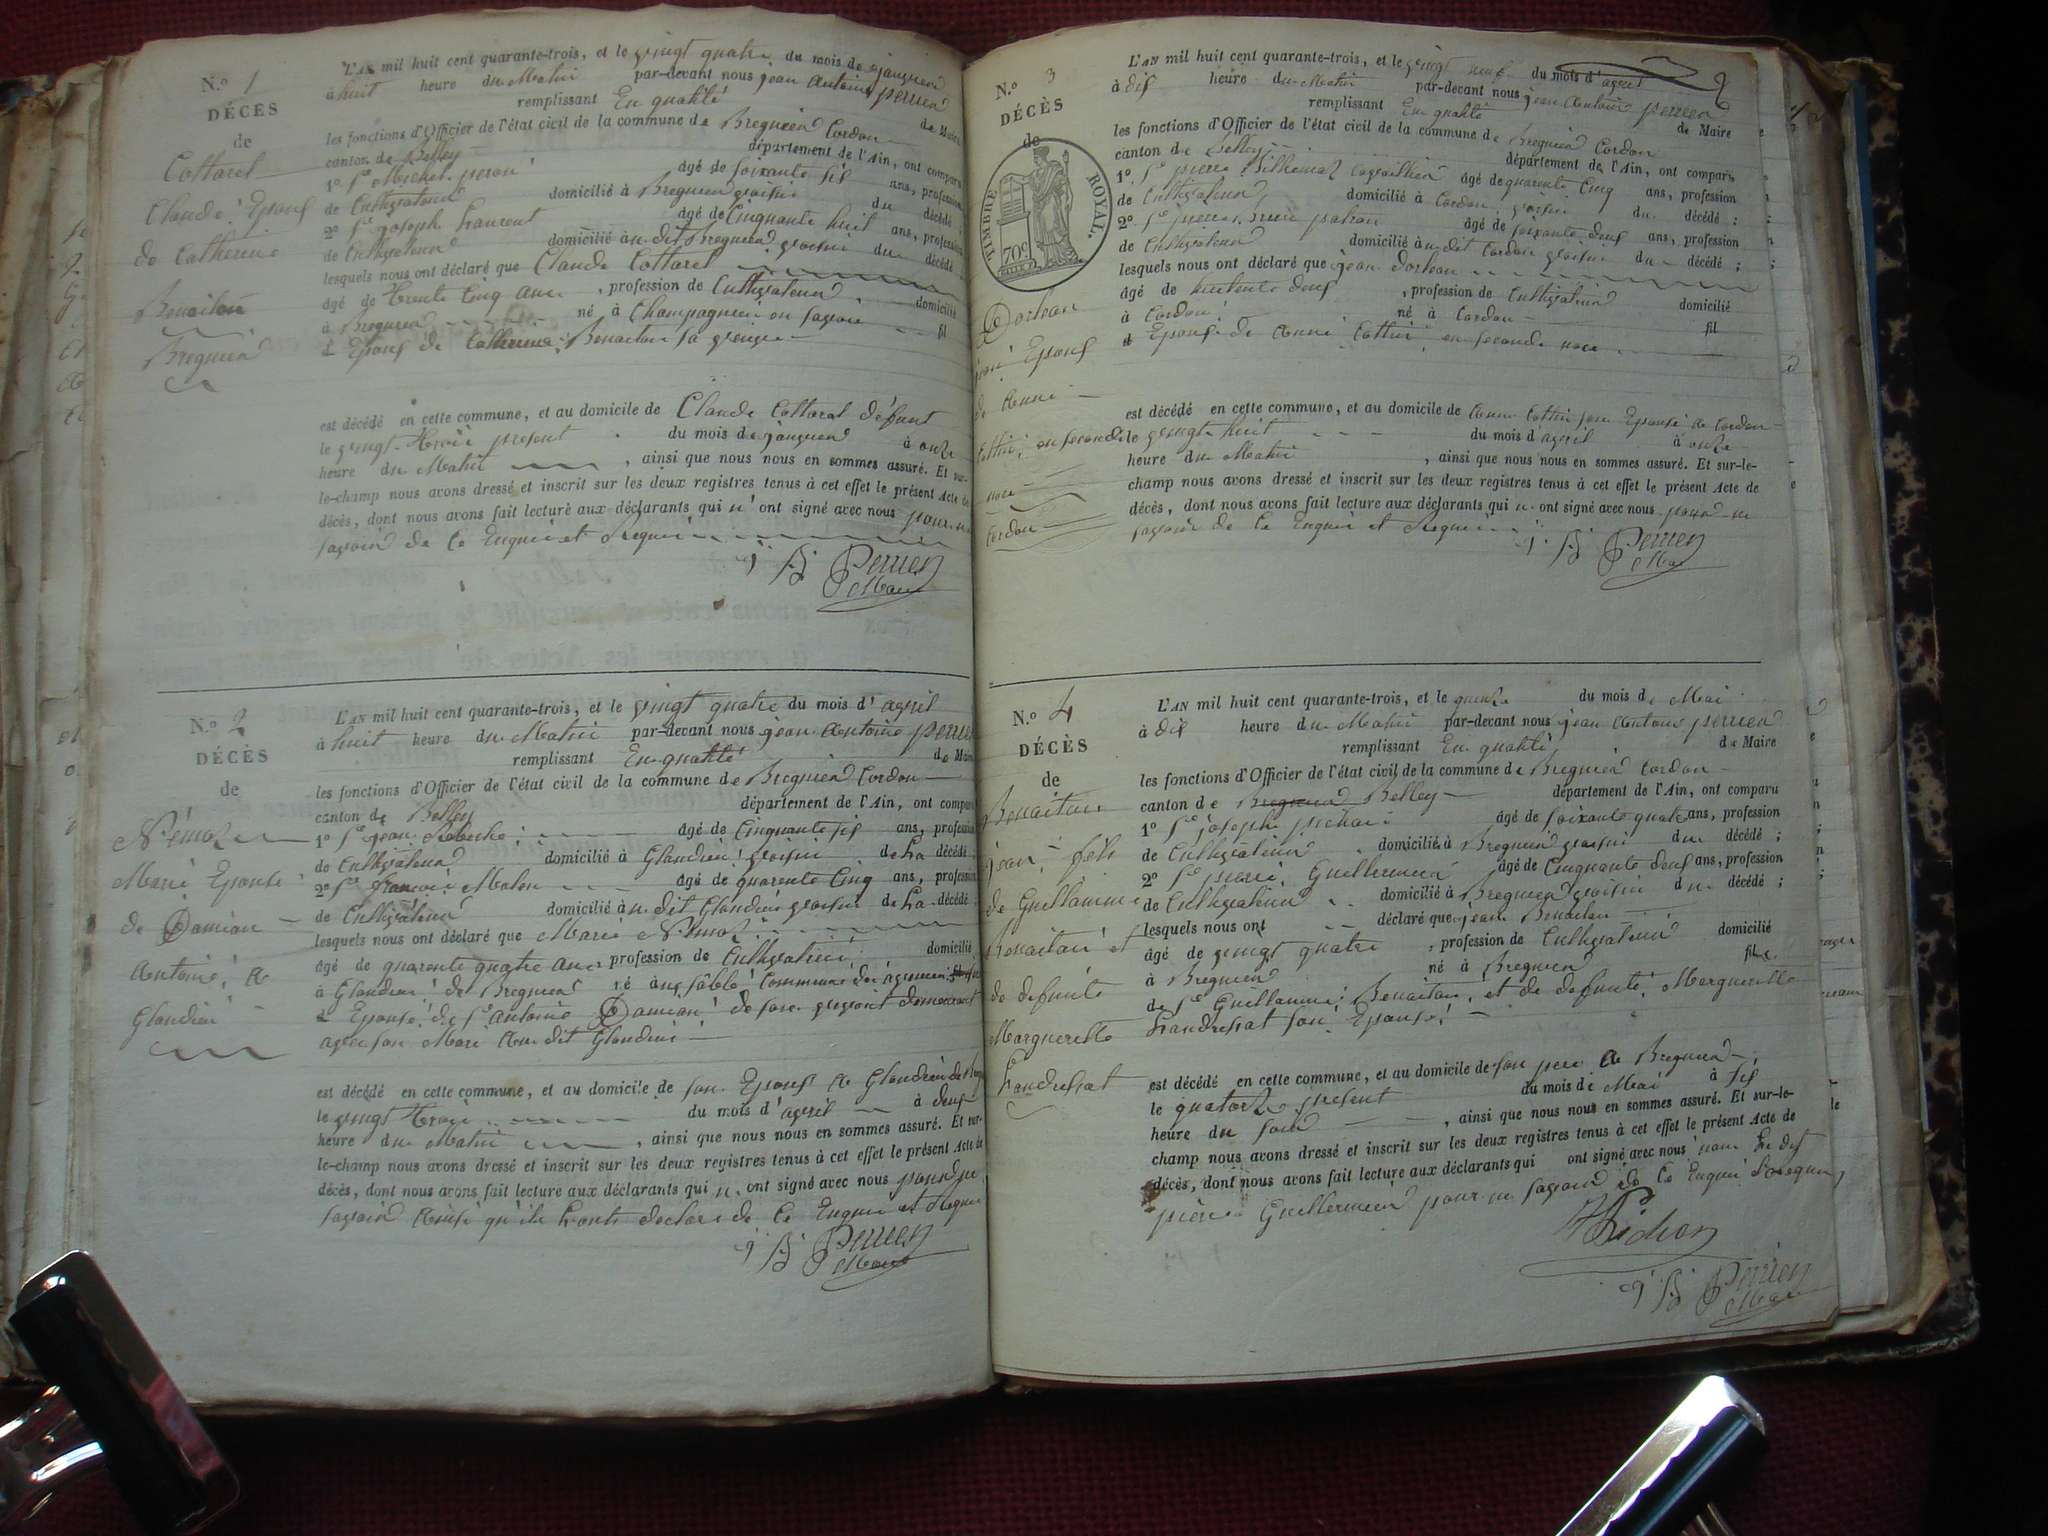 N.º 1
DÉCES
de
Cottarel
Claude Epoux
de Catherine
Benaiton
Bregnier
L'AN mil huit cent quarante-trois, et le vingt quatre du mois de janvier
à huit heure du Matin par-devant nous jean Antoine perrier
remplissant En qualité de Maire
les fonctions d'Officier de l'état civil de la commune de Bregnier Cordon
canton de Belley département de l'Ain, ont comparu
1º Sr Michel peroni âgé de soixante six ans, profession
de Cultivateur domicilié à Bregnier voisin du décédé ;
2º Sr joseph Laurent âgé de Cinquante huit ans, profession
de Cultivateur domicilié au dit Bregnier voisin du décédé
lesquels nous ont déclaré que Claude Cottarel
âgé de trente Cinq ans , profession de Cultivateur domicilié
à Bregnier né à Champagneu en savoie fil
d Epoux de Catherine Benaiton sa
est décédé en cette commune, et au domicile de Claude Cottarel défunt
le vingt trois present du mois de janvier à onze
heure du Matin , ainsi que nous nous en sommes assuré. Et sur-
le-champ nous avons dressé et inscrit sur les deux registres tenus à cet effet le présent Acte de
décès, dont nous avons fait lecture aux déclarants qui n'ont signé avec nous pour ne
savoir de Ce Enquis et Requis
Perrier
Maire
N.º 2
DÉCÈS
de
Némoz
Marie Epouse
de Damian
Antoine a
Glandieu
L'AN mil huit cent quarante-trois, et le vingt quatre du mois d'avril
à huit heure du Matin par-devant nous jean Antoine perrier
remplissant En qualité de Maire
les fonctions d'Officier de l'état civil de la commune de Bregnier Cordon
canton de Belley département de l'Ain, ont comparu
1º Sr jean âgé de Cinquante six ans, profession
de Cultivateur domicilié à Glandieu voisin de La décédé ;
2º Sr francois Malen âgé de quarente Cinq ans, profession
de Cultivateur domicilié au dit Glandieu voisin de La décédé ;
lesquels nous ont déclaré que Marie Némoz
âgé de quarente quatre ans profession de Cultivatrice domicilié
à Glandieu de Bregnier né au sable Commune d'
d Epouse du Sr Antoine Damian de son vivant demeurant
avec son Mari Au dit Glandieu
est décédé en cette commune, et au domicile de son Epoux a Glandieu de
le vingt trois du mois d'avril à deux
heure du Matin , ainsi que nous nous en sommes assuré. Et sur-
le-champ nous avons dressé et inscrit sur les deux registres tenus à cet effet le présent Acte de
décès, dont nous avons fait lecture aux déclarants qui n'ont signé avec nous pour ne
savoir Ainsi qu'ils L'ont déclaré de Ce Enquis et Requis
Perrier
Maire
N.º 3
DÉCÈS
de
TIMBRE ROYAL.
70c
Dorlean
jean Epoux
de Anne
Cottin en seconde
noce
Cordon
L'AN mil huit cent quarante-trois, et le vingt neuf du mois d'avril
à dix heure du Matin par-devant nous jean Antoine perrier
remplissant En qualité de Maire
les fonctions d'Officier de l'état civil de la commune de Bregnier Cordon
canton de Belley département de l'Ain, ont comparu
1º Sr pierre âgé de quarente Cinq ans, profession
de Cultivateur domicilié à Cordon voisin du décédé ;
2º Sr pierre âgé de soixante deux ans, profession
de Cultivateur domicilié au dit Cordon voisin du décédé ;
lesquels nous ont déclaré que jean Dorlean
âgé de deux , profession de Cultivateur domicilié
à Cordon né à Cordon fil
d Epoux de Anne Cottin en seconde noce
est décédé en cette commune, et au domicile de Anne Cottin son Epouse a Cordon
le vingt huit du mois d'avril à onze
heure du Matin , ainsi que nous nous en sommes assuré. Et sur-le-
champ nous avons dressé et inscrit sur les deux registres tenus à cet effet le présent Acte de
décès, dont nous avons fait lecture aux déclarants qui n'ont signé avec nous pour ne
savoir de Ce Enquis et Requis
Perrier
Maire
N.º 4
DÉCÈS
de
Benaiton
jean fils
de Guillaume
Benaiton et
de defunte
Marguerite
L'AN mil huit cent quarante-trois, et le quinze du mois de Mai
à dix heure du Matin par-devant nous jean Antoine perrier
remplissant En qualité de Maire
les fonctions d'Officier de l'état civil de la commune de Bregnier Cordon
canton de Bregnier Belley département de l'Ain, ont comparu
1º Sr joseph pichon âgé de soixante quatre ans, profession
de Cultivateur domicilié à Bregnier voisin du décédé ;
2º Sr pierre Guillermier âgé de Cinquante deux ans, profession
de Cultivateur domicilié à Bregnier voisin du décédé ;
lesquels nous ont déclaré que jean Benaiton
âgé de vingt quatre , profession de Cultivateur domicilié
à Bregnier né à Bregnier fils
de Sr Guillaume Benaiton, et de defunte Marguerite
son Epouse
est décédé en cette commune, et au domicile de son pere a Bregnier
le quatorze present du mois de Mai à six
heure du soir , ainsi que nous nous en sommes assuré. Et sur-le-
champ nous avons dressé et inscrit sur les deux registres tenus à cet effet le présent Acte de
décès, dont nous avons fait lecture aux déclarants qui ont signé avec nous non Le dit
pierre Guillermier pour ne savoir de Ce Enquis Et Requis
Pichon
Perrier
Maire